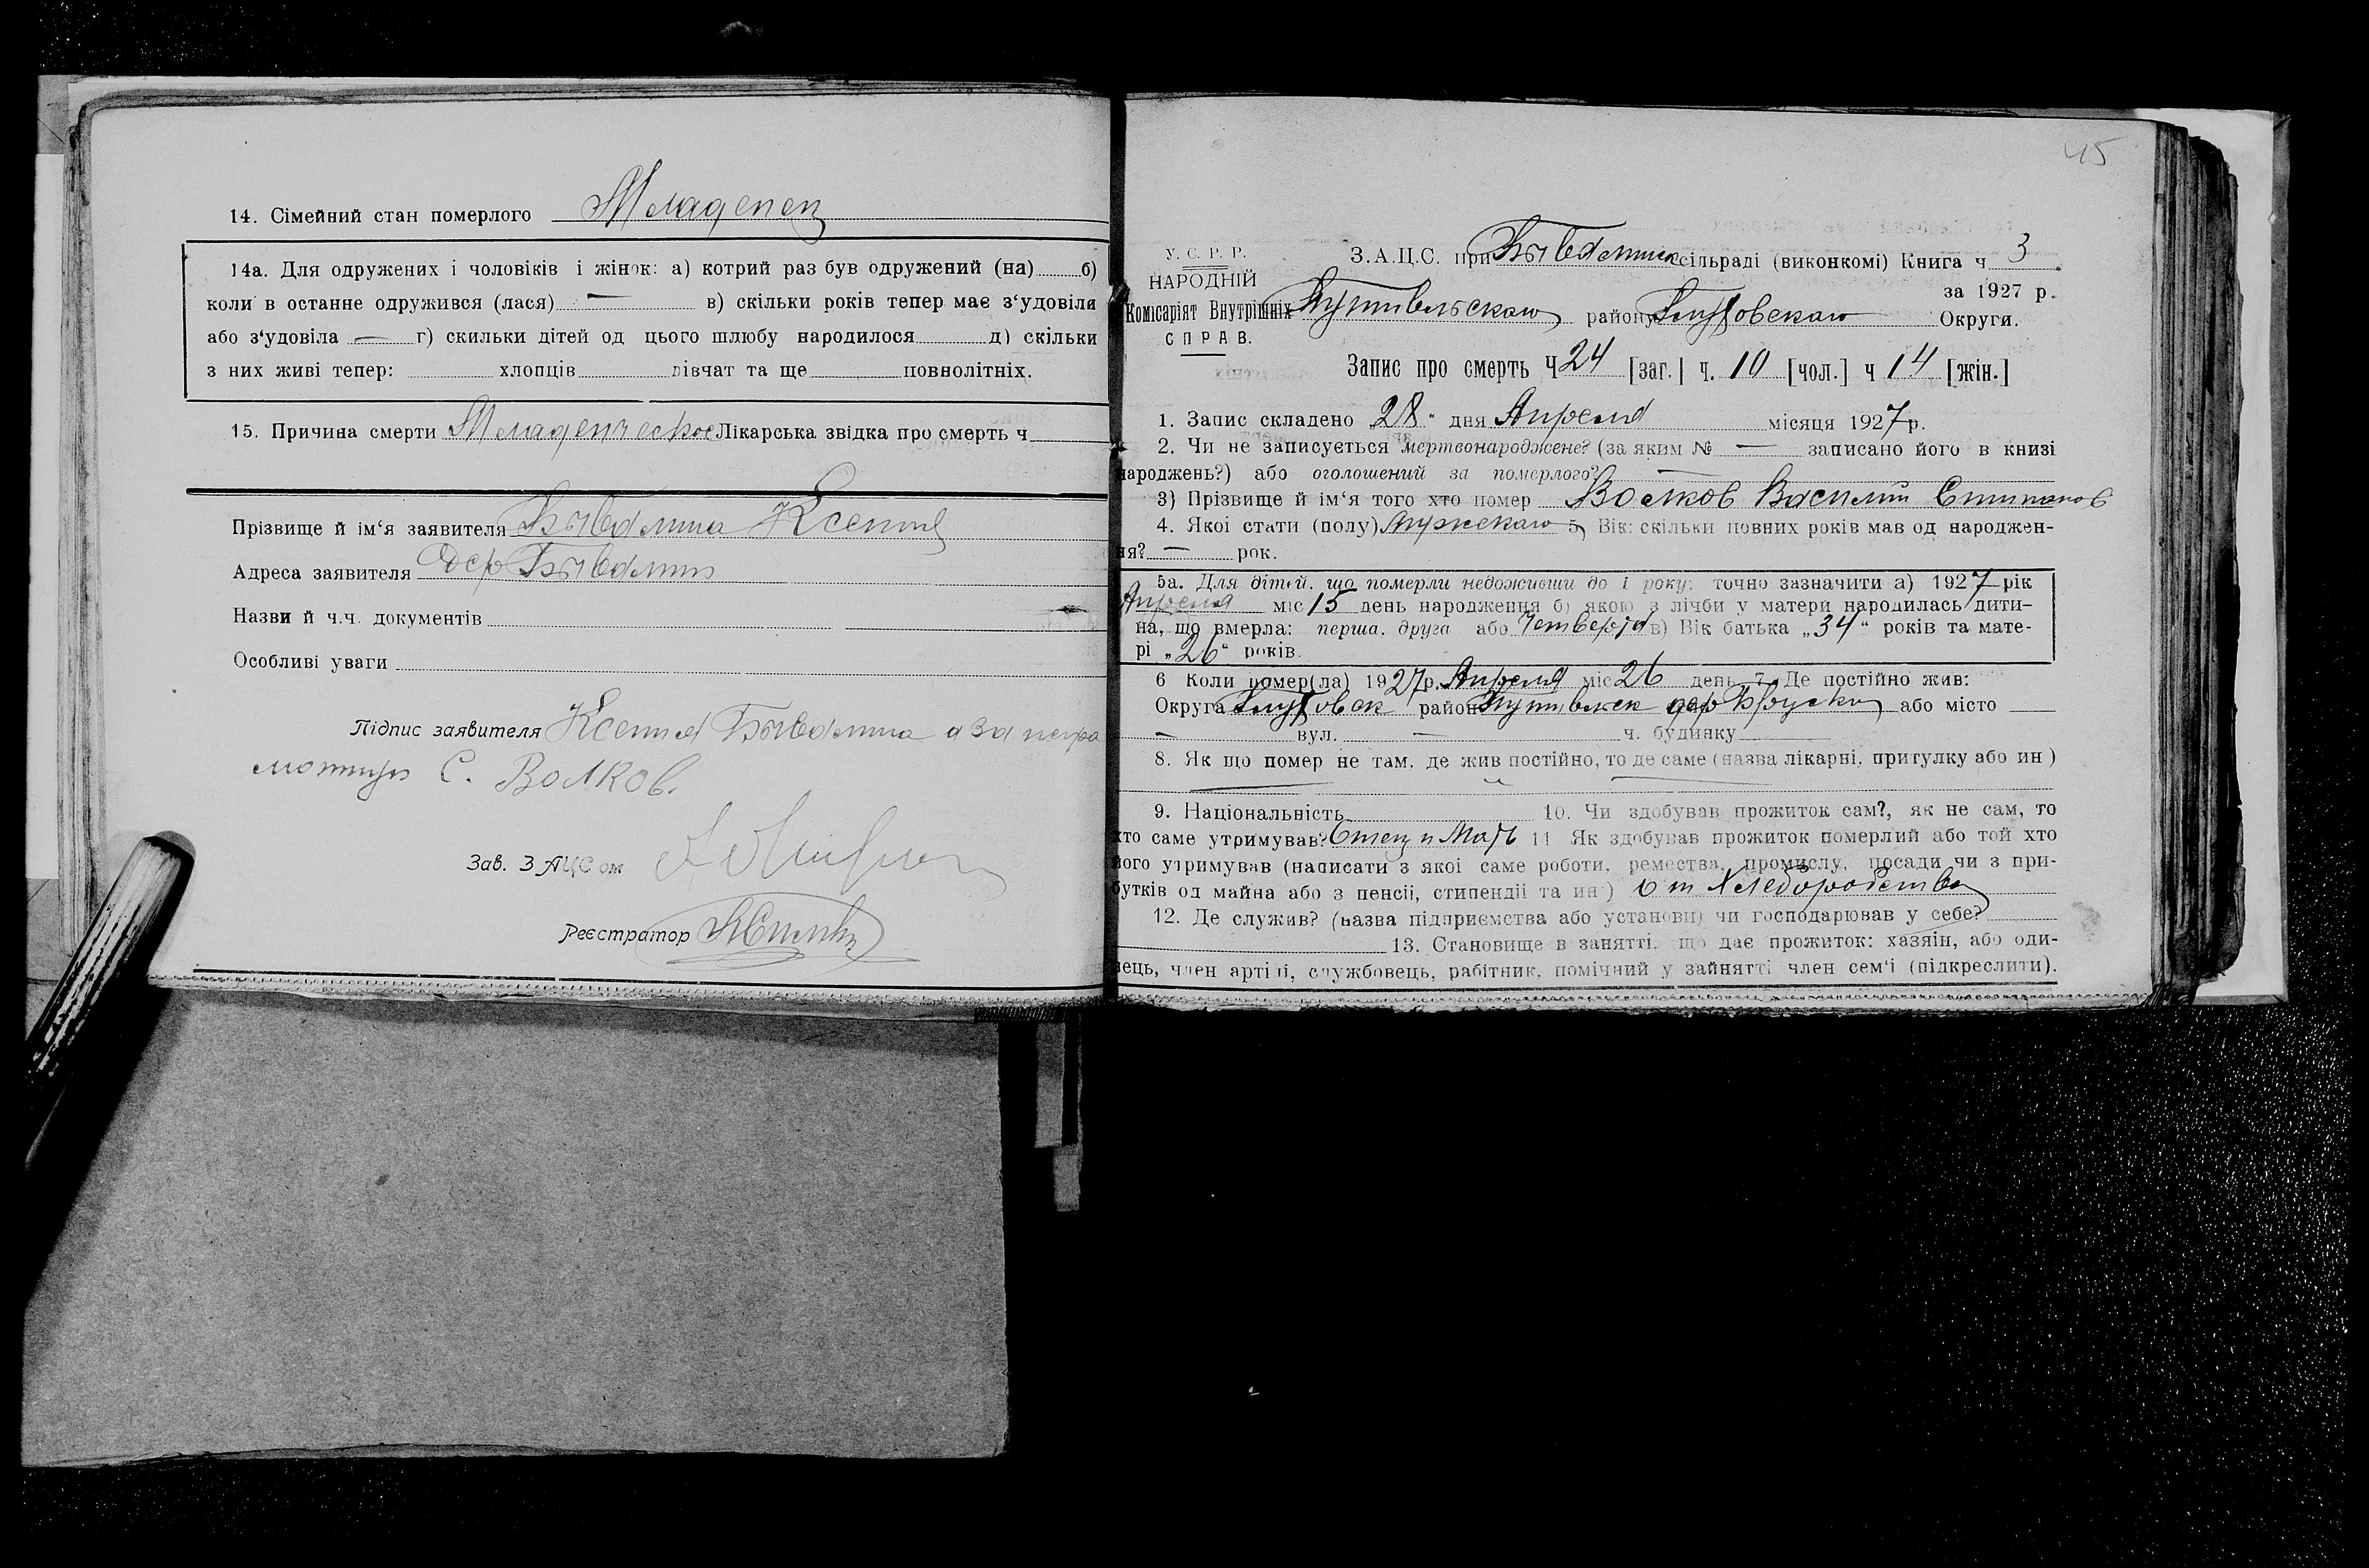 14. Сімейний стан померлого Младенец
14а. Для одружених і чоловіків і жінок: а) котрий раз був одружений (на) б)
коли в останне одружився (лася) — в) скільки років тепер має з‘удовіла
або з‘удовіла — г) скильки дітей од цього шлюбу народилося д) скільки
з них живі тепер: хлопців дівчат та ще повнолітніх.
15. Причина смерти Младенческое Лікарська звідка про смерть ч
Прізвище й ім‘я заявителя Бывалина Ксения
Адреса заявителя дер Бывалин
Назви й ч.ч. документів
Особливі уваги
Підпис заявителя Ксения Бывалина а за негра
мотную С. Волков.
Зав. ЗАЦСом
Реєстратор
45
У. С. Р. Р.
НАРОДНІЙ
Комісаріят Внутрішніх
СПРАВ.
З.А.Ц.С. при сільраді (виконкомі) Книга ч 3
за 1927 р.
Путивльскаго району Глуховскаго Округи.
Запис про смерть Ч 24 [заг.] ч. 10 [чол.] ч 14 [жін.]
1. Запис складено 28 “ дня Апреля місяця 1927 р.
2. Чи не записується мертвонароджене? (за яким № — записано його в книзі
народжень?) або оголошений за померлого? —
3) Прізвище й ім‘я того хто помер Волков Василий Стипанов
4. Якої стати (полу) Мужскаго 5 Вік: скільки повних років мав од народжен-
ня? — рок.
5а. Для дітей, що померли недоживши до 1 року: точно зазначити а) 1927 рік
Апреля міс 15 день народження б) якою з лічби у матери народилась дити-
на, що вмерла: перша, друга або Четвертая в) Вік батька „34“ років та мате-
рі „26“ років.
6 Коли помер(ла) 1927 р. Апреля міс 26 день 7. Де постійно жив:
Округа Глуховск район Путивльск дер Бруски або місто —
— вул. — ч. будинку
8. Як що помер не там, де жив постійно, то де саме (назва лікарні, притулку або ин)
9. Національність 10. Чи здобував прожиток сам?, як не сам, то
хто саме утримував? Отец и Мать 11 Як здобував прожиток померлий або той хто
його утримував (написати з якої саме роботи, ремества, промислу, посади чи з при-
бутків од майна або з пенсії, стипендії та ин) от Хлебородства
12. Де служив? (назва підприємства або установи) чи господарював у себе?
13. Становище в занятті, що дає прожиток: хазяін, або оди-
нець, член артілі, службовець, рабітник, помічний у зайнятті член сем‘ї (підкреслити).